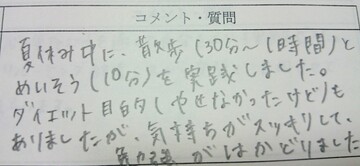 コメント・質問
夏休み中に、散歩(30分～1時間)と
めいそう(10分)を実践しました。
ダイエット目的(やせなかったけど)も
ありましたが、気持ちがスッキリして、
勉強がはかどりました